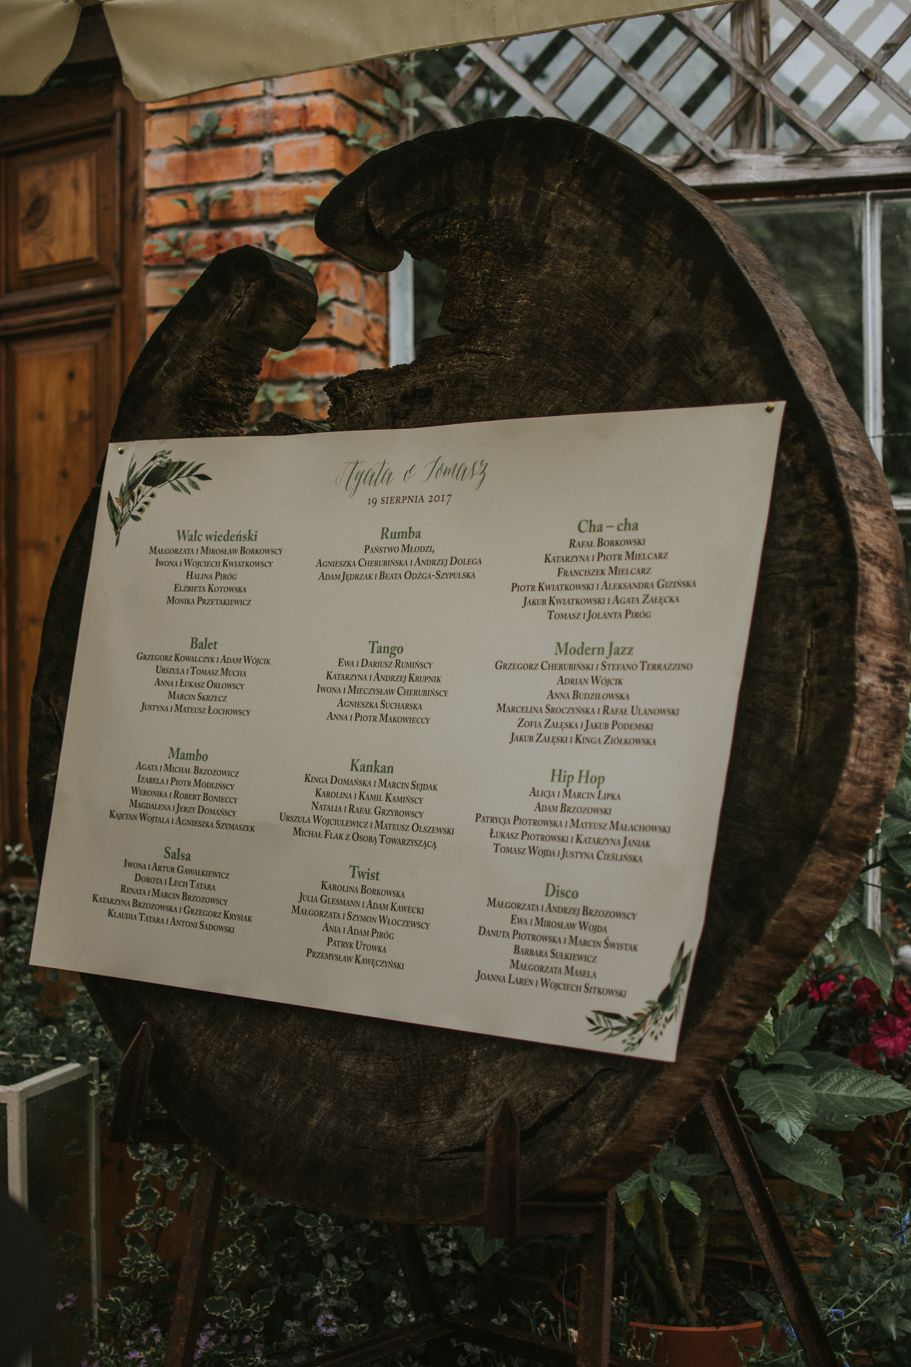 Agata & Tomasz
19 SIERPNIA 2017
Walc wiedeński
MAŁGORZATA I MIROSŁAW BORKOWSCY
IWONA I WOJCIECH KWIATKOWSCY
HALINA PIRÓG
ELŻBIETA KOTOWSKA
MONIKA PRZETAKIEWICZ
Rumba
PAŃSTWO MŁODZI,
AGNIESZKA CHERUBIŃSKA I ANDRZEJ DOLEGA
ADAM JĘDRZAK I BEATA ODZGA-SZYPULSKA
Cha – cha
RAFAŁ BORKOWSKI
KATARZYNA I PIOTR MIELCARZ
FRANCISZEK MIELCARZ
PIOTR KWIATKOWSKI I ALEKSANDRA GIZIŃSKA
JAKUB KWIATKOWSKI I AGATA ZAŁĘCKA
TOMASZ I JOLANTA PIRÓG
Balet
GRZEGORZ KOWALCZYK I ADAM WÓJCIK
URSZULA I TOMASZ MUCHA
ANNA I ŁUKASZ ORŁOWSCY
MARCIN SKRZECZ
JUSTYNA I MATEUSZ ŁOCHOWSCY
Tango
EWA I DARIUSZ RUMIŃSCY
KATARZYNA I ANDRZEJ KRUPNIK
IWONA I MIECZYSŁAW CHERUBIŃSCY
AGNIESZKA SUCHARSKA
ANNA I PIOTR MAKOWIECCY
Modern Jazz
GRZEGORZ CHERUBIŃSKI I STEFANO TERRAZZINO
ADRIAN WÓJCIK
ANNA BUDZIŁOWSKA
MARCELINA SROCZYŃSKA I RAFAŁ ULANOWSKI
ZOFIA ZAŁĘSKA I JAKUB PODEMSKI
JAKUB ZAŁĘSKI I KINGA ZIÓŁKOWSKA
Mambo
AGATA I MICHAŁ BRZOZOWICZ
IZABELA I PIOTR MODLIŃSCY
WERONIKA I ROBERT BONIECCY
MAGDALENA I JERZY DOMAŃSCY
KAJETAN WOJTALA I AGNIESZKA SZYMASZEK
Kankan
KINGA DOMAŃSKA I MARCIN SEJDAK
KAROLINA I KAMIL KAMIŃSCY
NATALIA I RAFAŁ GRZYBOWSCY
URSZULA WOJCIULEWICZ I MATEUSZ OLSZEWSKI
MICHAŁ FLAK Z OSOBĄ TOWARZYSZĄCĄ
Hip Hop
ALICJA I MARCIN LIPKA
ADAM BRZOZOWSKI
PATRYCJA PIOTROWSKA I MATEUSZ MAŁACHOWSKI
ŁUKASZ PIOTROWSKI I KATARZYNA JANIAK
TOMASZ WOJDA I JUSTYNA CIEŚLIŃSKA
Salsa
IWONA I ARTUR GAWAŁKIEWICZ
DOROTA I LECH TATARA
RENATA I MARCIN BRZOZOWSCY
KATARZYNA BRZOZOWSKA I GRZEGORZ KRYSIAK
KLAUDIA TATARA I ANTONI SADOWSKI
Twist
KAROLINA BORKOWSKA
JULIA GLESMANN I ADAM KAWECKI
MAŁGORZATA I SZYMON WŁOCZEWSCY
ANIA I ADAM PIRÓG
PATRYK UTOWKA
PRZEMYSŁAW KAWĘCZYŃSKI
Disco
MAŁGORZATA I ANDRZEJ BRZOZOWSCY
EWA I MIROSŁAW WOJDA
DANUTA PIOTROWSKA I MARCIN ŚWISTAK
BARBARA SUŁKIEWICZ
MAŁGORZATA MASELA
JOANNA LAREN I WOJCIECH SITKOWSKI